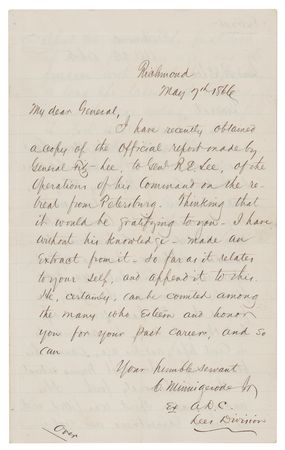 Richmond
May 7th 1866
My dear General,
I have recently obtained
a copy of the Official report made by
General Fitz-Lee, to Genl R. E. Lee, of the
Operations of his Command on the re-
treat from Petersburg. Thinking that
it would be gratifying to you - I have
without his knowledge - made an
Extract from it - so far as it relates
to your self, and append it to this.
We, certainly, can be counted among
the many who Esteem and honor
you for your past career, and so
can
Your humble servant
C. Minnigerode Jr
Ex A.D.C.
Lees Division
Over